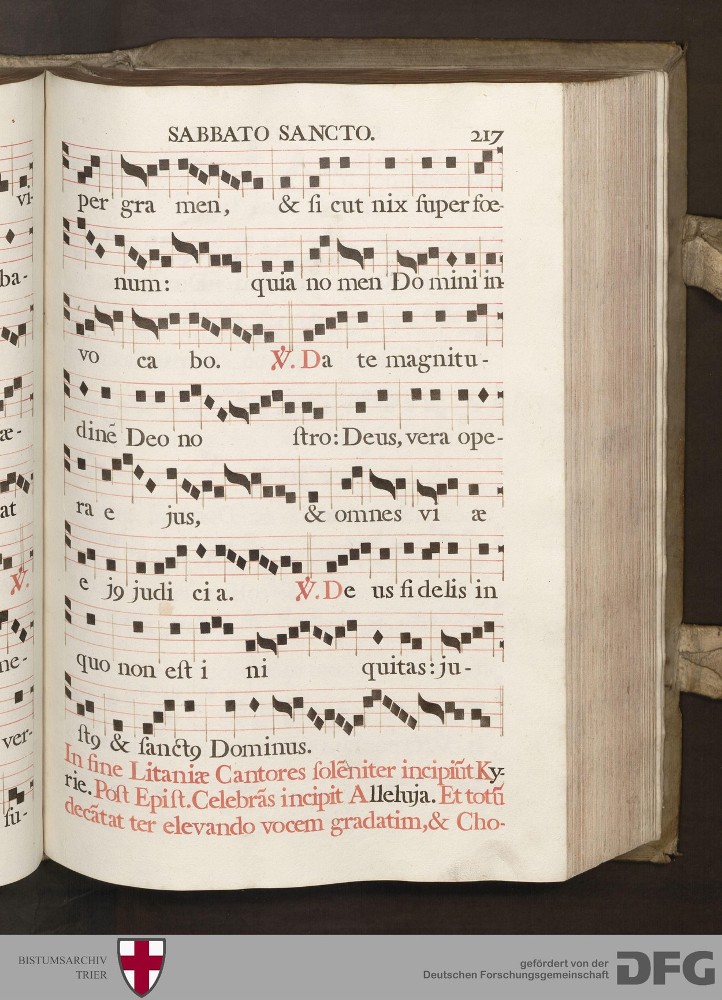 vi-
ba-
æ-
at
℣.
ne-
ver-
ſu-
SABBATO SANCTO. 217
per gra men, & ſi cut nix ſuper fœ-
num: quia no men Do mini in-
vo ca bo. ℣. Da te magnitu-
dinē Deo no ſtro: Deus, vera ope-
ra e jus, & omnes vi æ
e jꝰ judi ci a. ℣. De us fi delis in
quo non eſt i ni quitas: ju-
ſtꝰ & ſanctꝰ Dominus.
In fine Litaniæ Cantores ſolēniter incipiūt Ky-
rie. Poſt Epiſt. Celebrās incipit Alleluja. Et totū
decātat ter elevando vocem gradatim, & Cho-
BISTUMSARCHIV
TRIER
gefördert von der
Deutschen Forschungsgemeinschaft
DFG